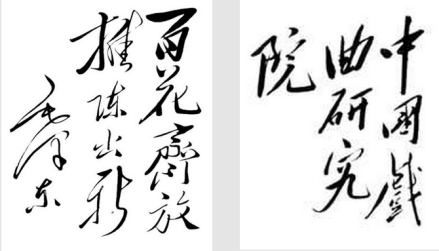 百花齊放
推陈出新
毛泽东
中國戲
曲研究
院